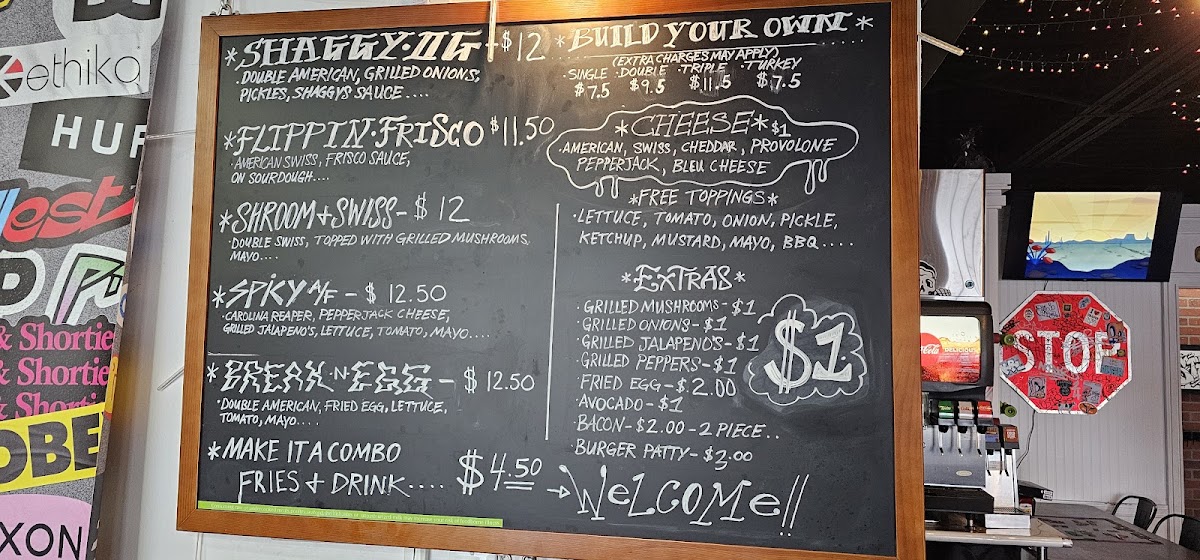 ethika
HUF
est
& Shortie
& Shortie
& Shortie
OBE
XON
*SHAGGY·DG-$12
·DOUBLE AMERICAN, GRILLED ONIONS,
PICKLES, SHAGGYS SAUCE....
*FLIPPIN·FRISCO $11.50
·AMERICAN SWISS, FRISCO SAUCE,
ON SOURDOUGH....
*SHROOM+SWISS-$12
·DOUBLE SWISS, TOPPED WITH GRILLED MUSHROOMS,
MAYO....
*SPICY A/F-$12.50
·CAROLINA REAPER, PEPPERJACK CHEESE,
GRILLED JALAPENO'S, LETTUCE, TOMATO, MAYO....
*BREAK·N·EGG-$12.50
·DOUBLE AMERICAN, FRIED EGG, LETTUCE,
TOMATO, MAYO....
*MAKE IT A COMBO
FRIES + DRINK.... $4.50
*BUILD YOUR OWN*
(EXTRA CHARGES MAY APPLY)
·SINGLE ·DOUBLE ·TRIPLE ·TURKEY
$7.5 $9.5 $11.5 $7.5
*CHEESE* $1
·AMERICAN, SWISS, CHEDDAR, PROVOLONE
PEPPERJACK, BLEU CHEESE
*FREE TOPPINGS*
·LETTUCE, TOMATO, ONION, PICKLE,
KETCHUP, MUSTARD, MAYO, BBQ....
*EXTRAS*
·GRILLED MUSHROOMS-$1
·GRILLED ONIONS-$1
·GRILLED JALAPENO'S-$1
·GRILLED PEPPERS-$1
·FRIED EGG-$2.00
·AVOCADO-$1
·BACON-$2.00-2 PIECE..
·BURGER PATTY-$3.00
$1
→WELCOME!!
Coca-Cola
DELICIOUS
STOP